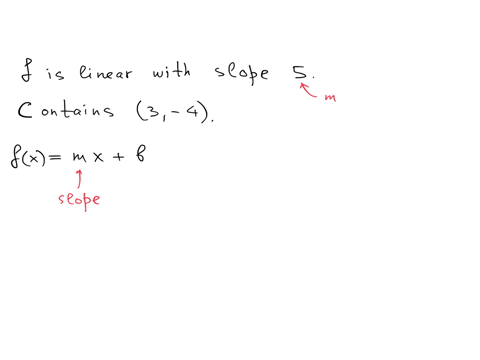 f is linear with slope 5.
m
Contains (3,-4).
f(x) = mx + b
slope